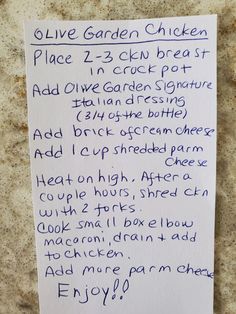 OLIVE GARDEN CHICKEN
Place 2-3 CKN breast
in crock pot
Add Olive Garden Signature
Italian dressing
(3/4 of the bottle)
Add brick of cream cheese
Add 1 cup shredded parm
cheese
Heat on high. After a
couple hours, shred ckn
with 2 forks.
Cook small box elbow
macaroni, drain + add
to chicken.
Add more parm cheese
Enjoy!!